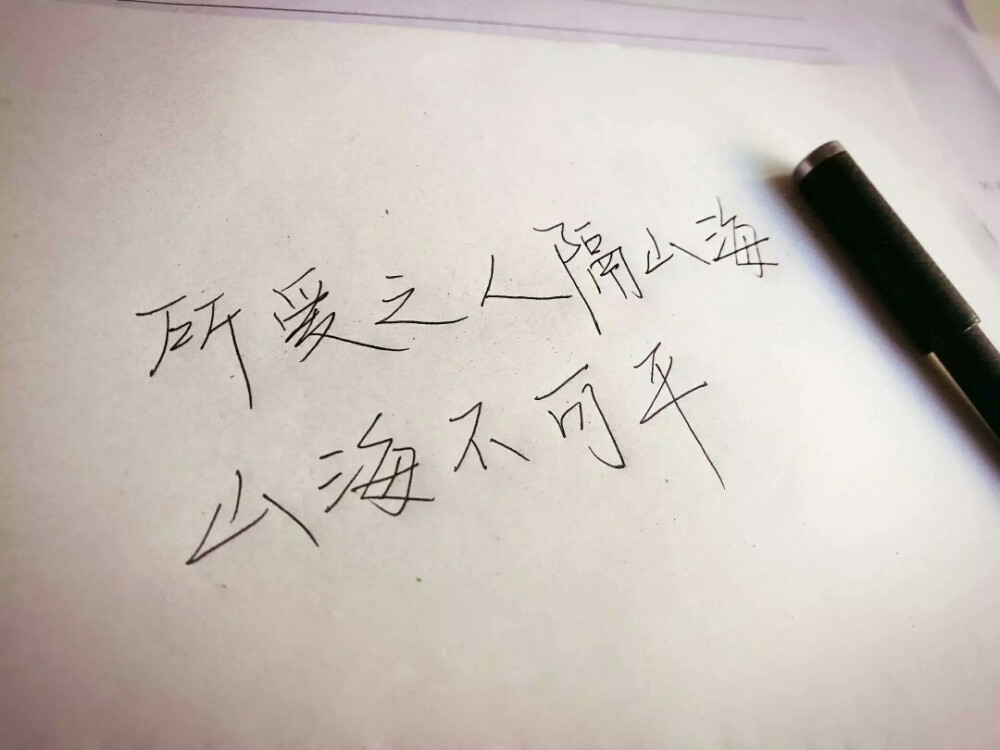 所爱之人隔山海
山海不可平